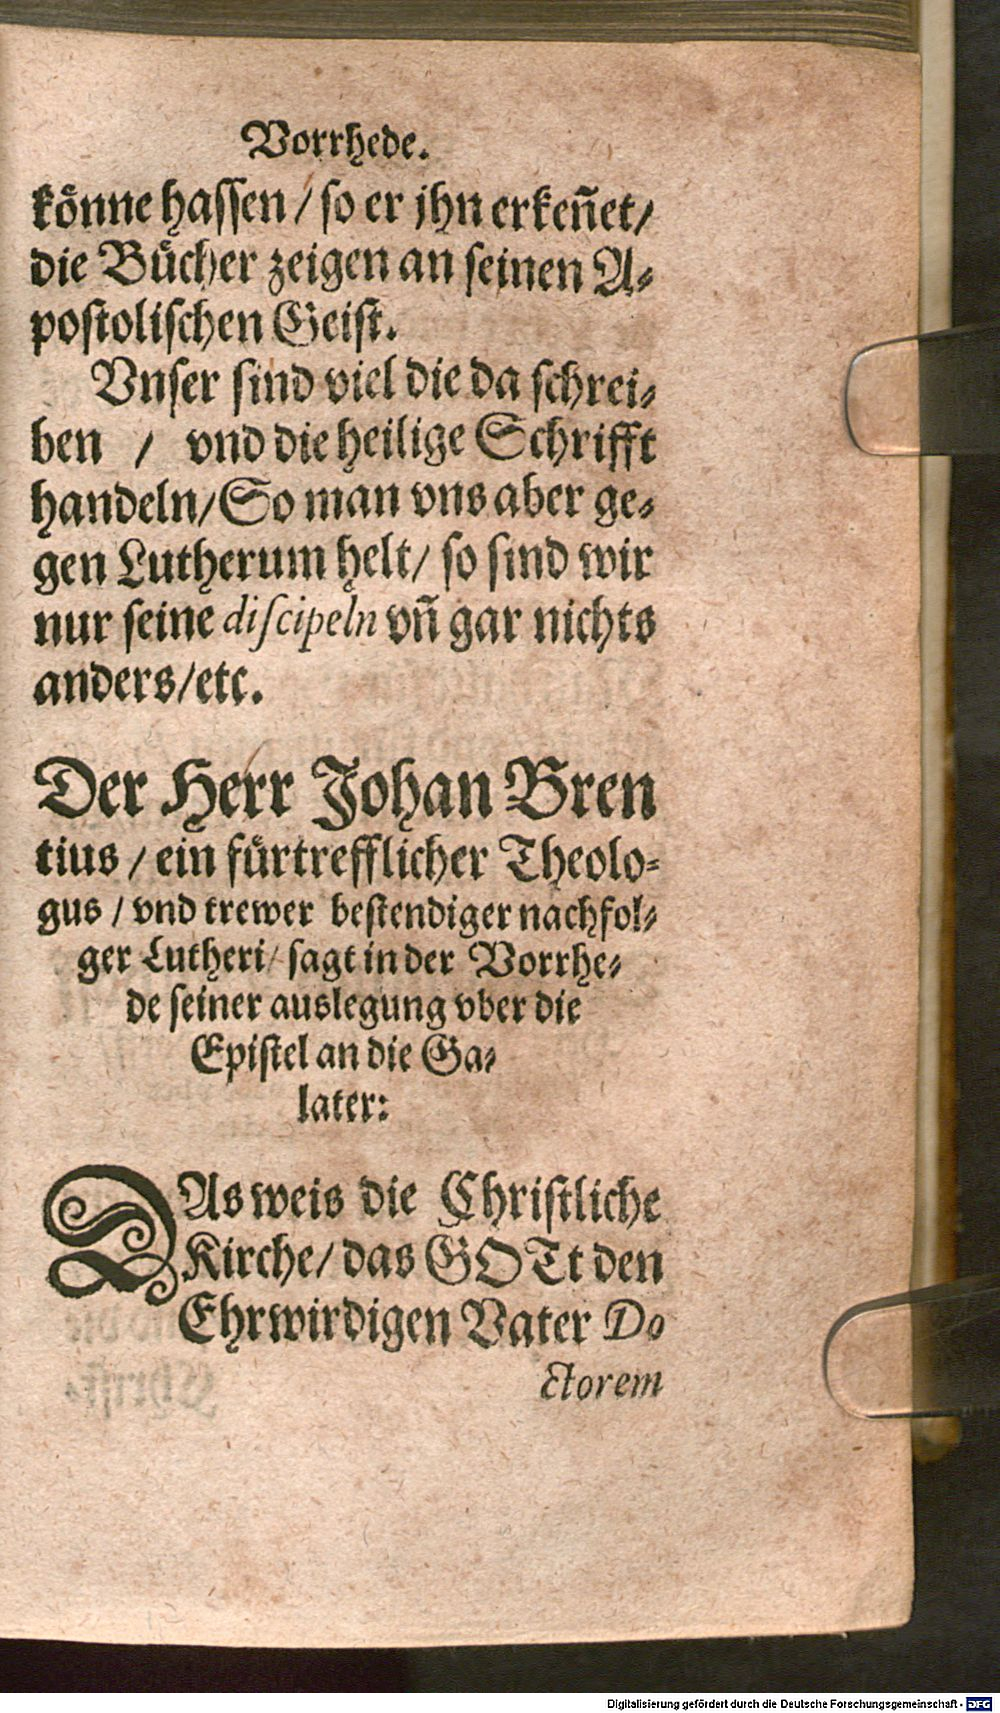 Vorrhede.
könne hassen / so er jhn erkeñet /
die Bücher zeigen an seinen A-
postolischen Geist.
Vnser sind viel die da schrei-
ben / vnd die heilige Schrifft
handeln / So man vns aber ge-
gen Lutherum helt / so sind wir
nur seine discipeln vñ gar nichts
anders / etc.
Der Herr Johan Bren
tius / ein fürtrefflicher Theolo-
gus / vnd trewer bestendiger nachfol-
ger Lutheri / sagt in der Vorrhe-
de seiner auslegung vber die
Epistel an die Ga-
later:
DAs weis die Christliche
Kirche / das GOTt den
Ehrwirdigen Vater Do
ctorem
Digitalisierung gefördert durch die Deutsche Forschungsgemeinschaft - DFG